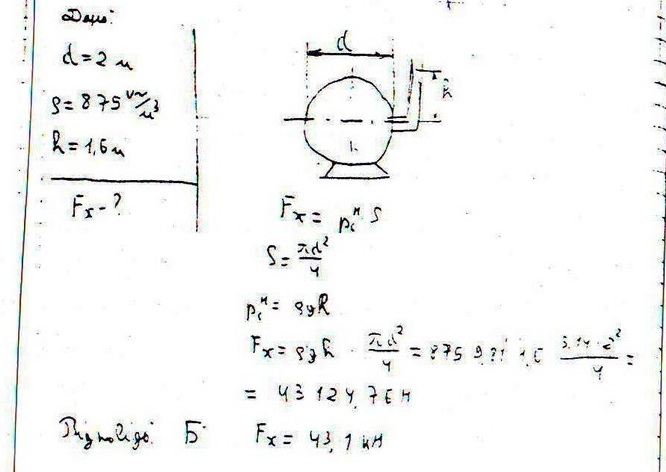 Дано:
d
d = 2 м
h
ρ = 875 кг/м³
h = 1,6 м
Fx - ?
Fx = pcᴴ S
S = πd²/4
pcᴴ = ρgh
Fx = ρgh · πd²/4 = 875 9,81 1,6 3,14 · 2²/4 =
= 43124,76 Н
Відповідь: Б Fx = 43,1 кН